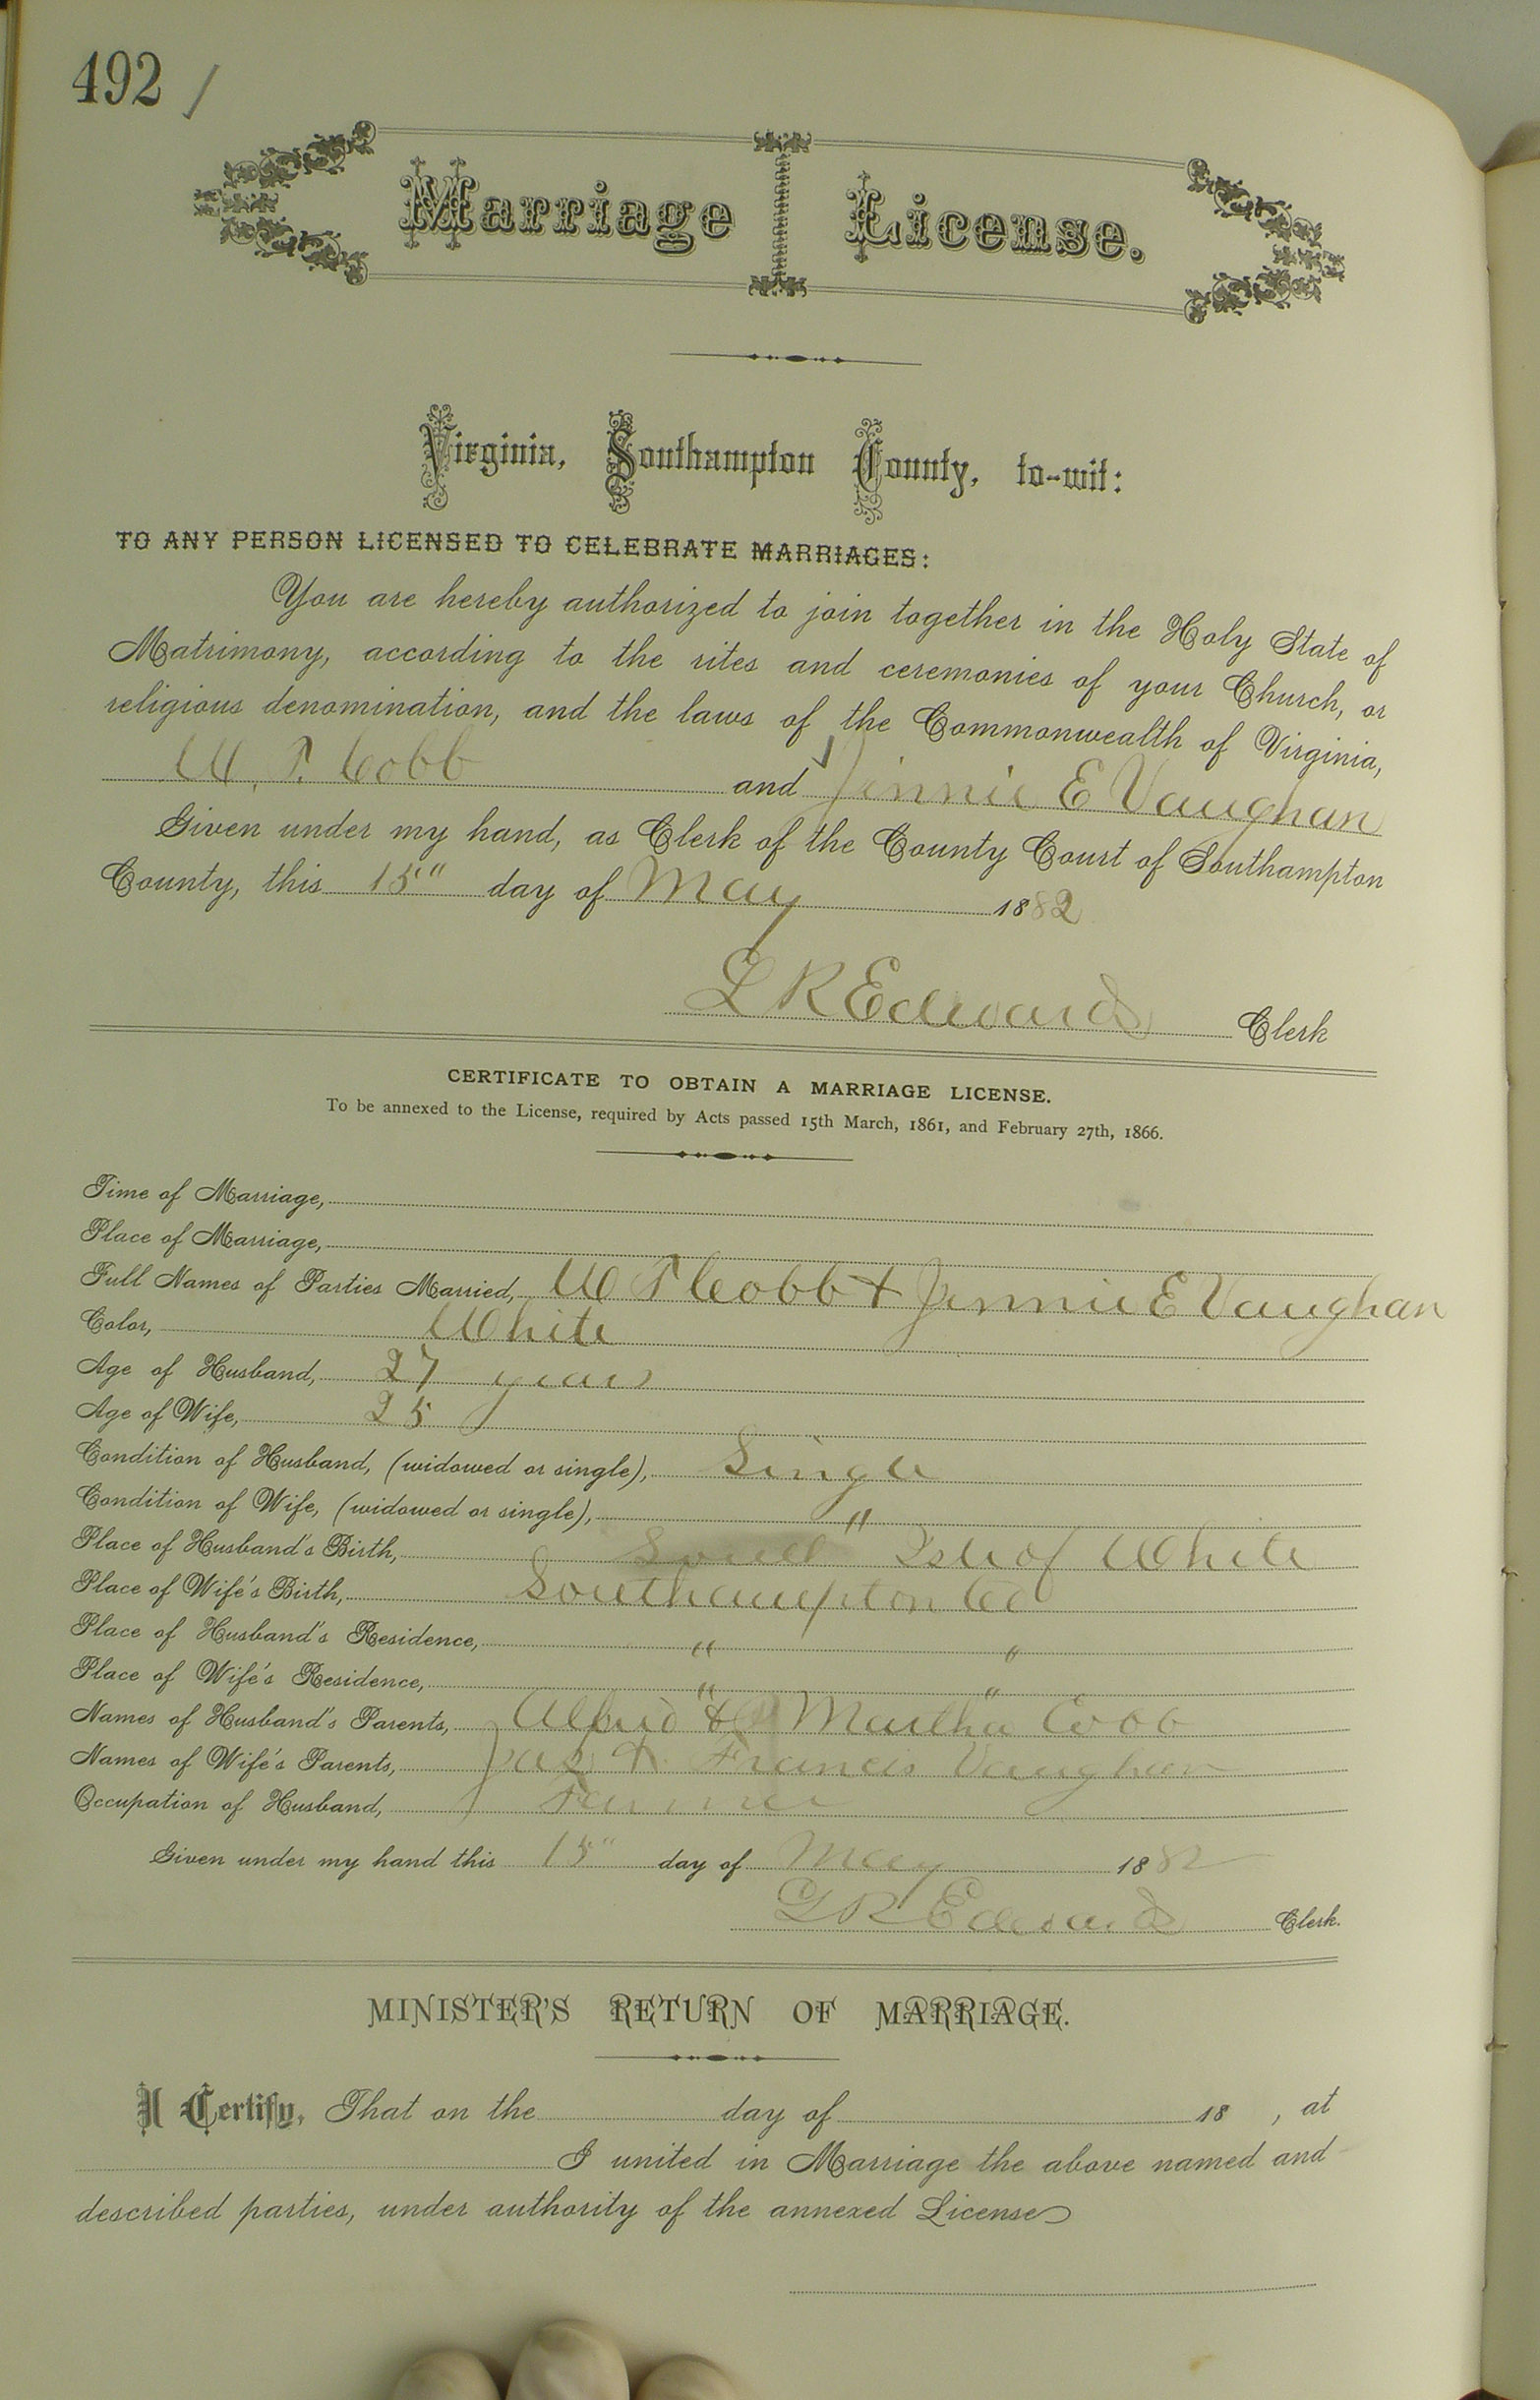 492 /
Marriage License.
Virginia, Southampton County, to-wit:
TO ANY PERSON LICENSED TO CELEBRATE MARRIAGES:
You are hereby authorized to join together in the Holy State of
Matrimony, according to the rites and ceremonies of your Church, or
religious denomination, and the laws of the Commonwealth of Virginia,
W. T. Cobb and Jinnie E Vaughan
Given under my hand, as Clerk of the County Court of Southampton
County, this 15" day of May 1882
L R Edwards Clerk
CERTIFICATE TO OBTAIN A MARRIAGE LICENSE.
To be annexed to the License, required by Acts passed 15th March, 1861, and February 27th, 1866.
Time of Marriage,
Place of Marriage,
Full Names of Parties Married, W T Cobb + Jinnie E Vaughan
Color, White
Age of Husband, 27 years
Age of Wife, 25
Condition of Husband, (widowed or single), Single
Condition of Wife, (widowed or single), "
Place of Husband's Birth, Isle of White
Place of Wife's Birth, Southampton Co
Place of Husband's Residence, " "
Place of Wife's Residence, " "
Names of Husband's Parents, Alfred & Martha Cobb
Names of Wife's Parents, Jas & Francis Vaughan
Occupation of Husband, Farmer
Given under my hand this 15" day of May 1882
L R Edwards Clerk.
MINISTER'S RETURN OF MARRIAGE.
I Certify, That on the day of 18 , at
I united in Marriage the above named and
described parties, under authority of the annexed License